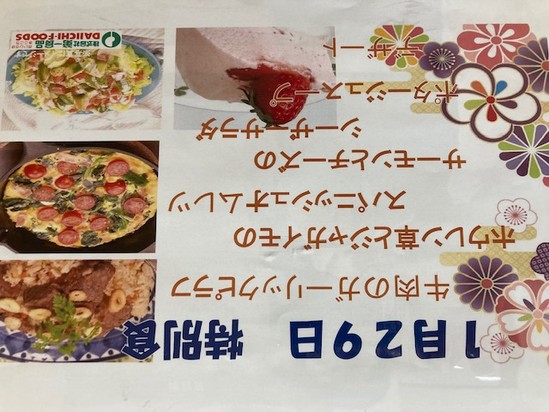 1月29日 特別食
牛肉のガーリックピラフ
ホウレン草とジャガイモの
スパニッシュオムレツ
サーモンとチーズの
シーザーサラダ
ポタージュスープ
デザート
株式会社第一食品
DAIICHI-FOODS